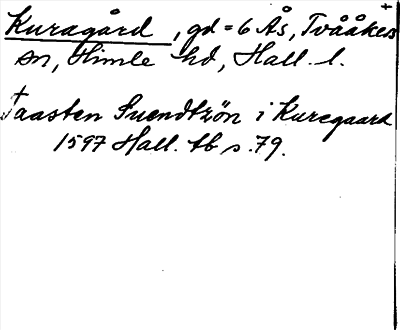 Kuragård, gd = 6 Ås, Tvååkers
sn, Himle hd, Hall. l.
Taasten Suendtzön i Kuregaard
1597 Hall. tb s. 79.